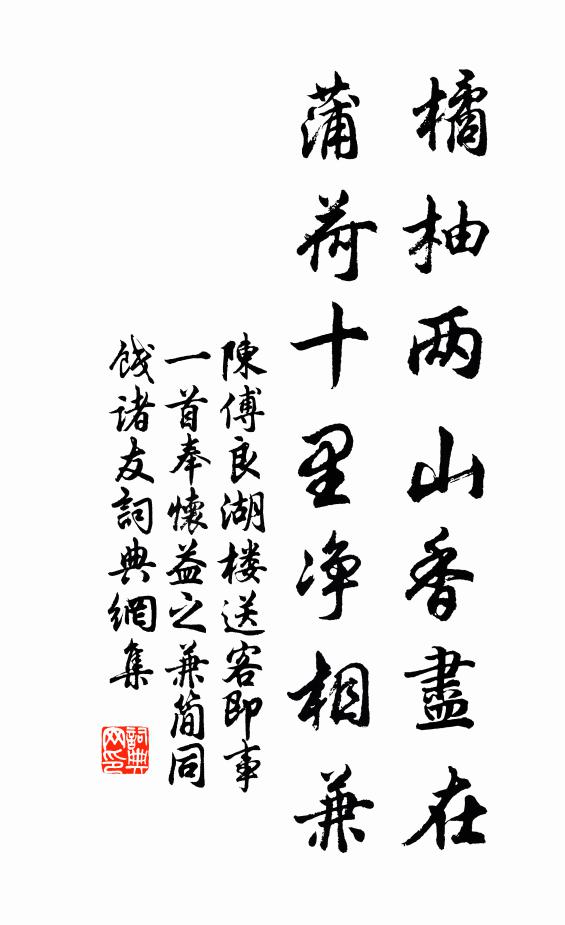 橘柚两山香盡在
蒲荷十里净相兼
陳傅良湖楼送客即事
一首奉懷益之兼简同
餞诸友詞典網集
詞典网印